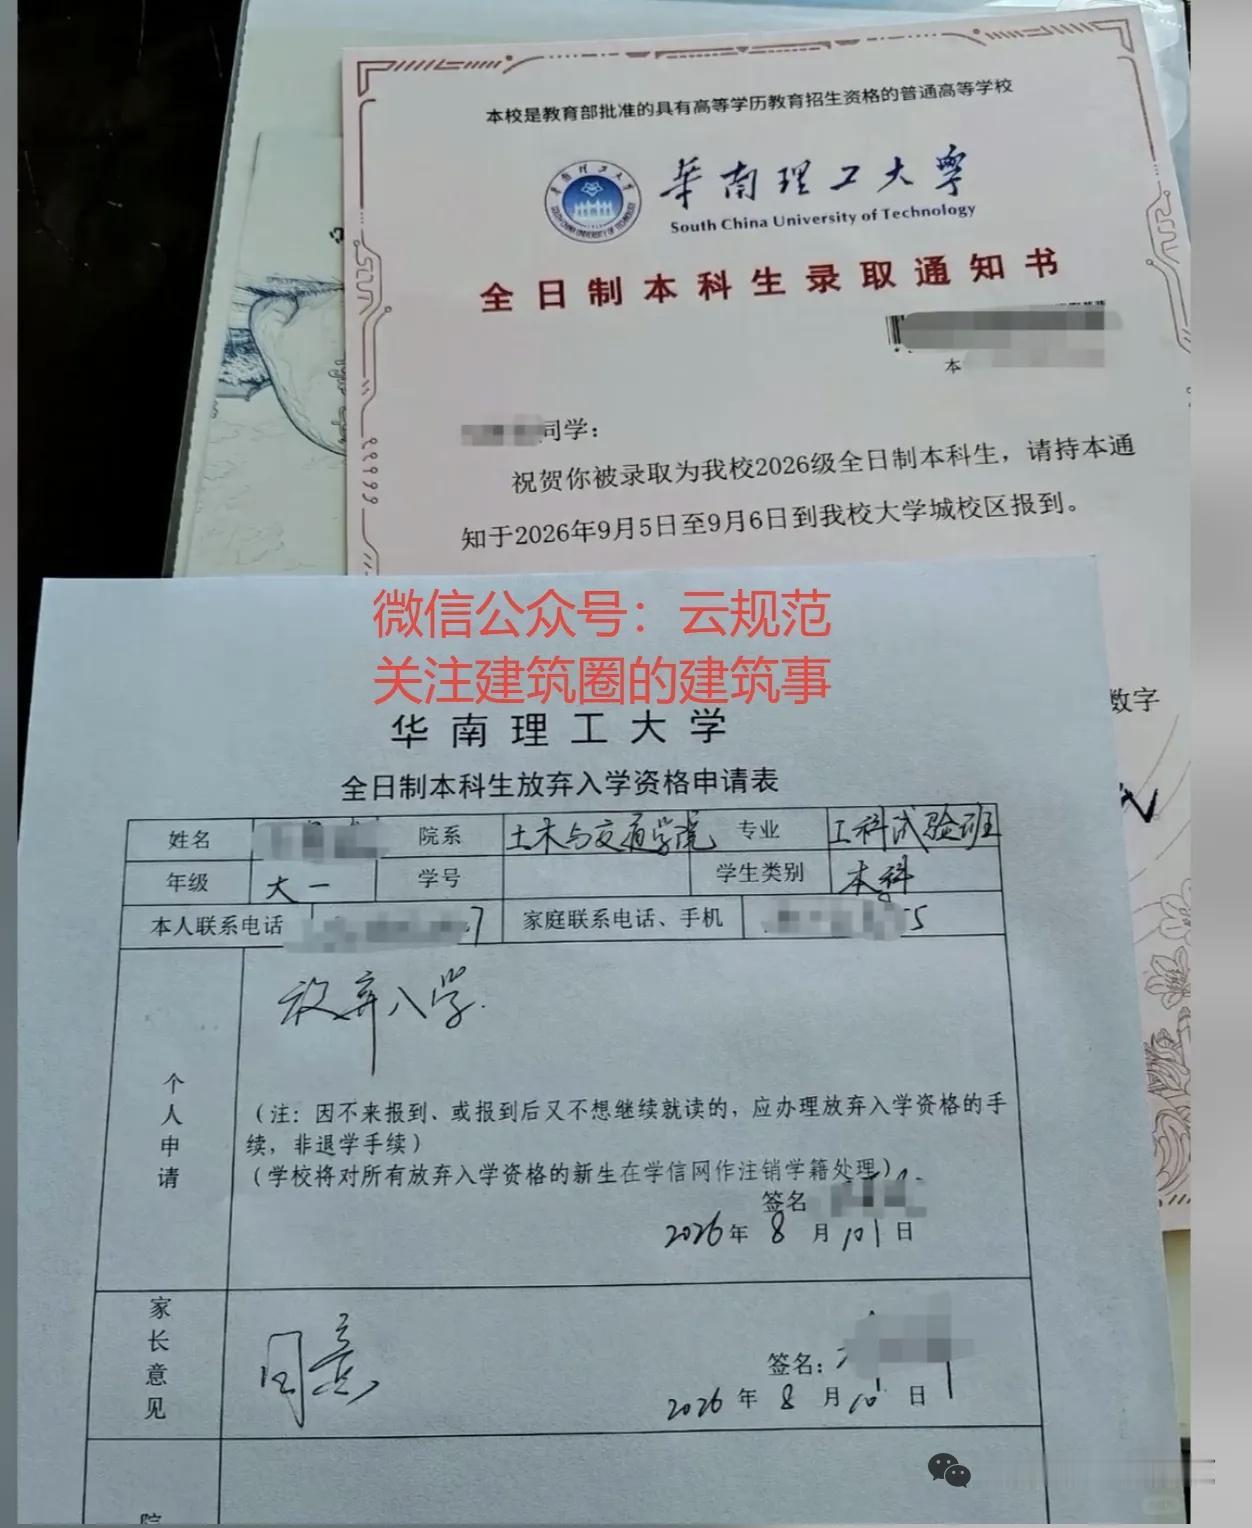 本校是教育部批准的具有高等学历教育招生资格的普通高等学校
華南理工大學
South China University of Technology
全日制本科生录取通知书
本
同学：
祝贺你被录取为我校2026级全日制本科生，请持本通
知于2026年9月5日至9月6日到我校大学城校区报到。
数字
微信公众号：云规范
关注建筑圈的建筑事
华南理工大学
全日制本科生放弃入学资格申请表
姓名 院系 土木与交通学院 专业 工科试验班
年级 大一 学号 学生类别 本科
本人联系电话 7 家庭联系电话、手机 55
放弃入学.
个人申请
（注：因不来报到、或报到后又不想继续就读的，应办理放弃入学资格的手
续，非退学手续）
（学校将对所有放弃入学资格的新生在学信网作注销学籍处理）
签名
2026年 8 月 10 日
家长意见
同意
签名：
2026年 8 月 10 日
院